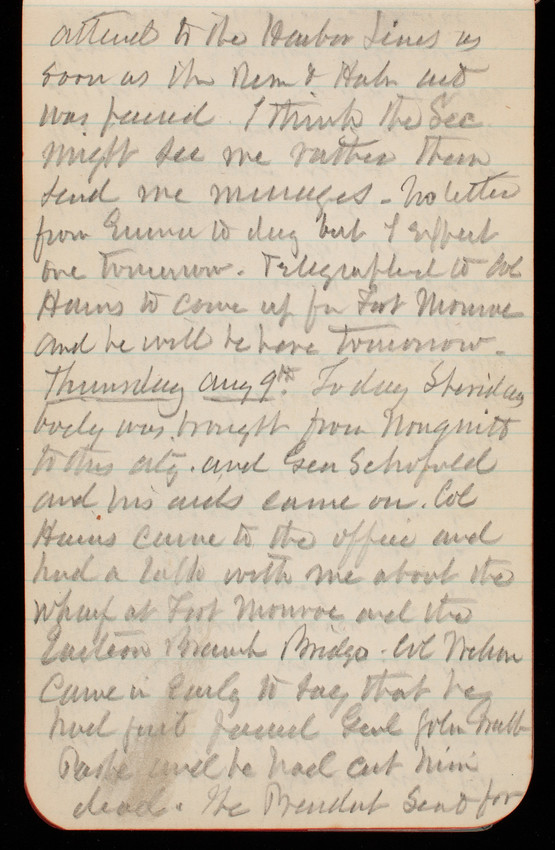 attend to the Harbor Lines as
soon as the River & Harbor act
was passed. I think the Sec
might see me rather than
send me messages - No letter
from Emma to day but I expect
one tomorrow. Telegraphed to Col
Hains to come up for Fort Monroe
and he will be here tomorrow -
Thursday Aug 9th. To day Sheridans
body was brought from Nonquitt
to this city. and Gen Schofield
and his aids came on. Col
Hains came to the office and
had a talk with me about the
wharf at Fort Monroe and the
Eastern Branch Bridge. Col Wilson
came in early to say that he
had just passed Genl John
and he had cut him
dead. The President sent for